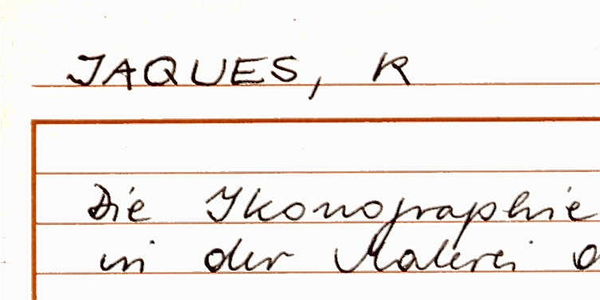 JAQUES, R
Die Ikonographie
in der Malerei